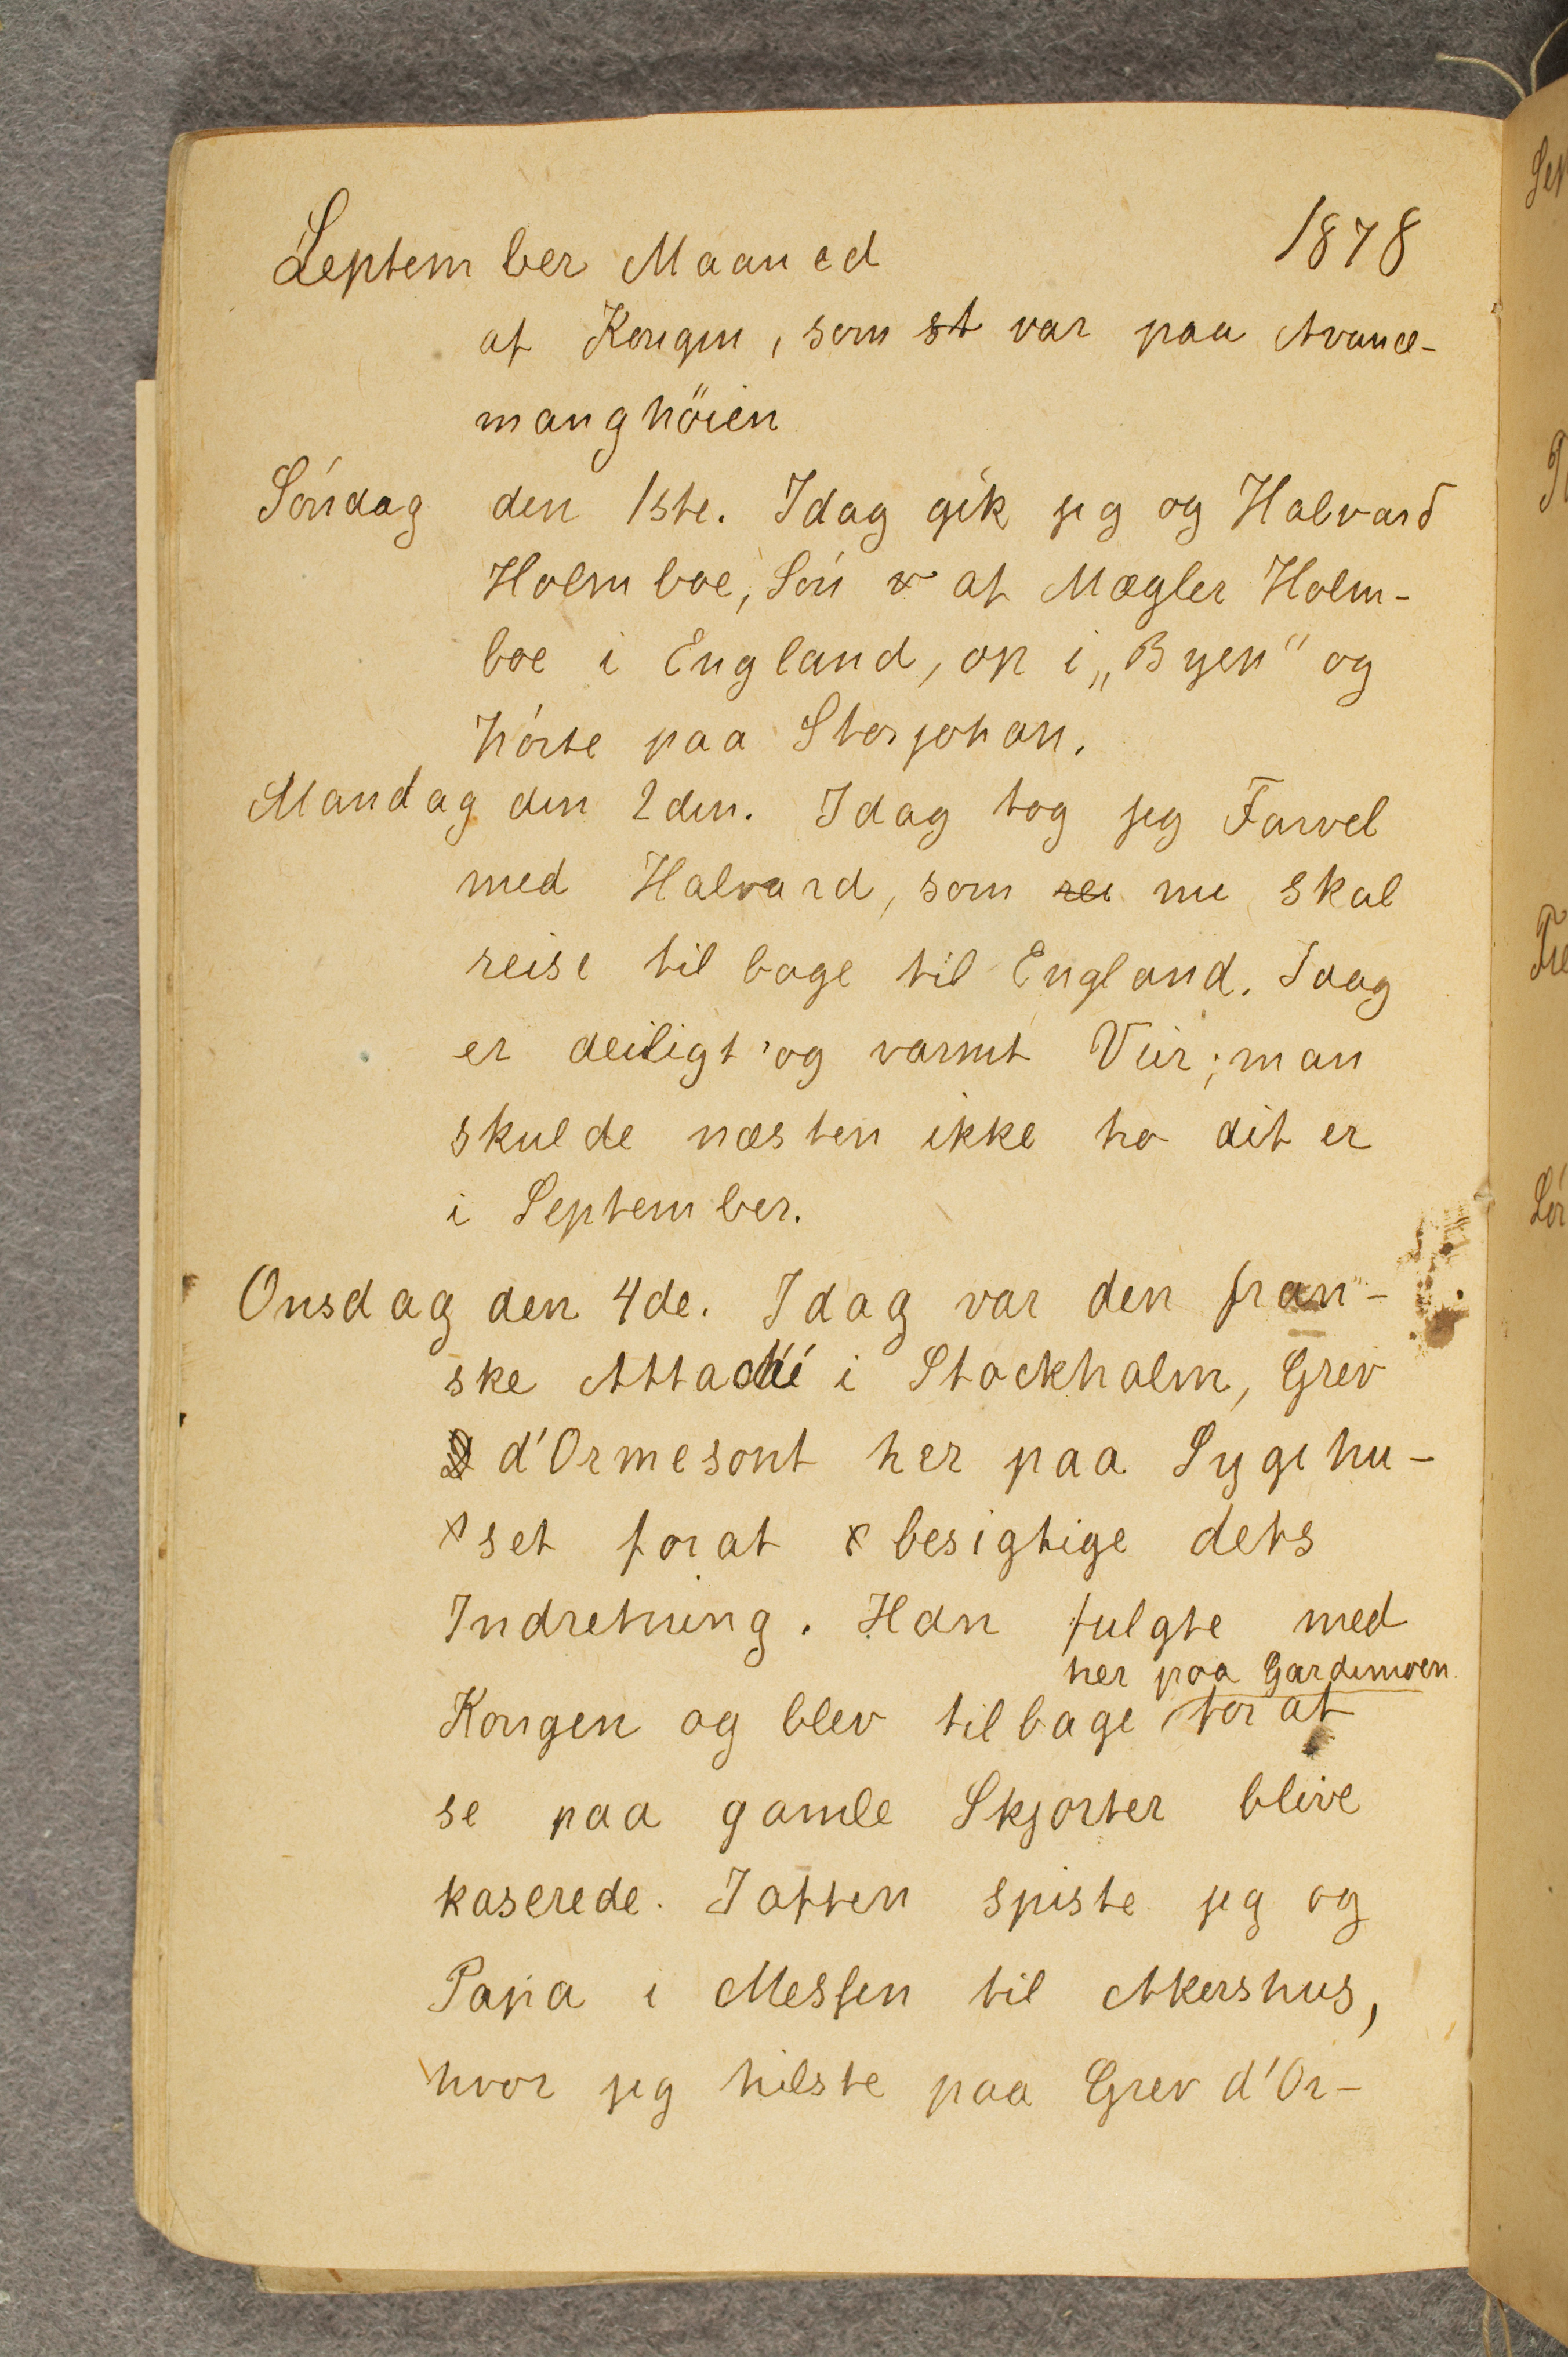 September Maaned 1878
af Kongen, som st var paa Avance-
manghöien
Søndag den 1ste. Idag gik jeg og Halvard
Holmboe, Søn v af Mægler Holm-
boe i England, op i „Byen" og
hørte paa Storjohan.
Mandag den 2den. Idag tog jeg Farvel
med Halvard, som rei nu skal
reise tilbage til England. Idag
er deiligt og varmt Veir; man
skulde næsten ikke tro det er
i September.
Onsdag den 4de. Idag var den fran-
ske Attaché i Stockholm, Grev
d'Ormesont her paa Sygehu-
set forat besigtige dets
Indretning. Han fulgte med
her paa Gardemoen
Kongen og blev tilbage for at
se paa gamle Skjorter blive
kaserede. Iaften spiste jeg og
Papa i Messen til Akershus,
hvor jeg hilste paa Grev d'Or-